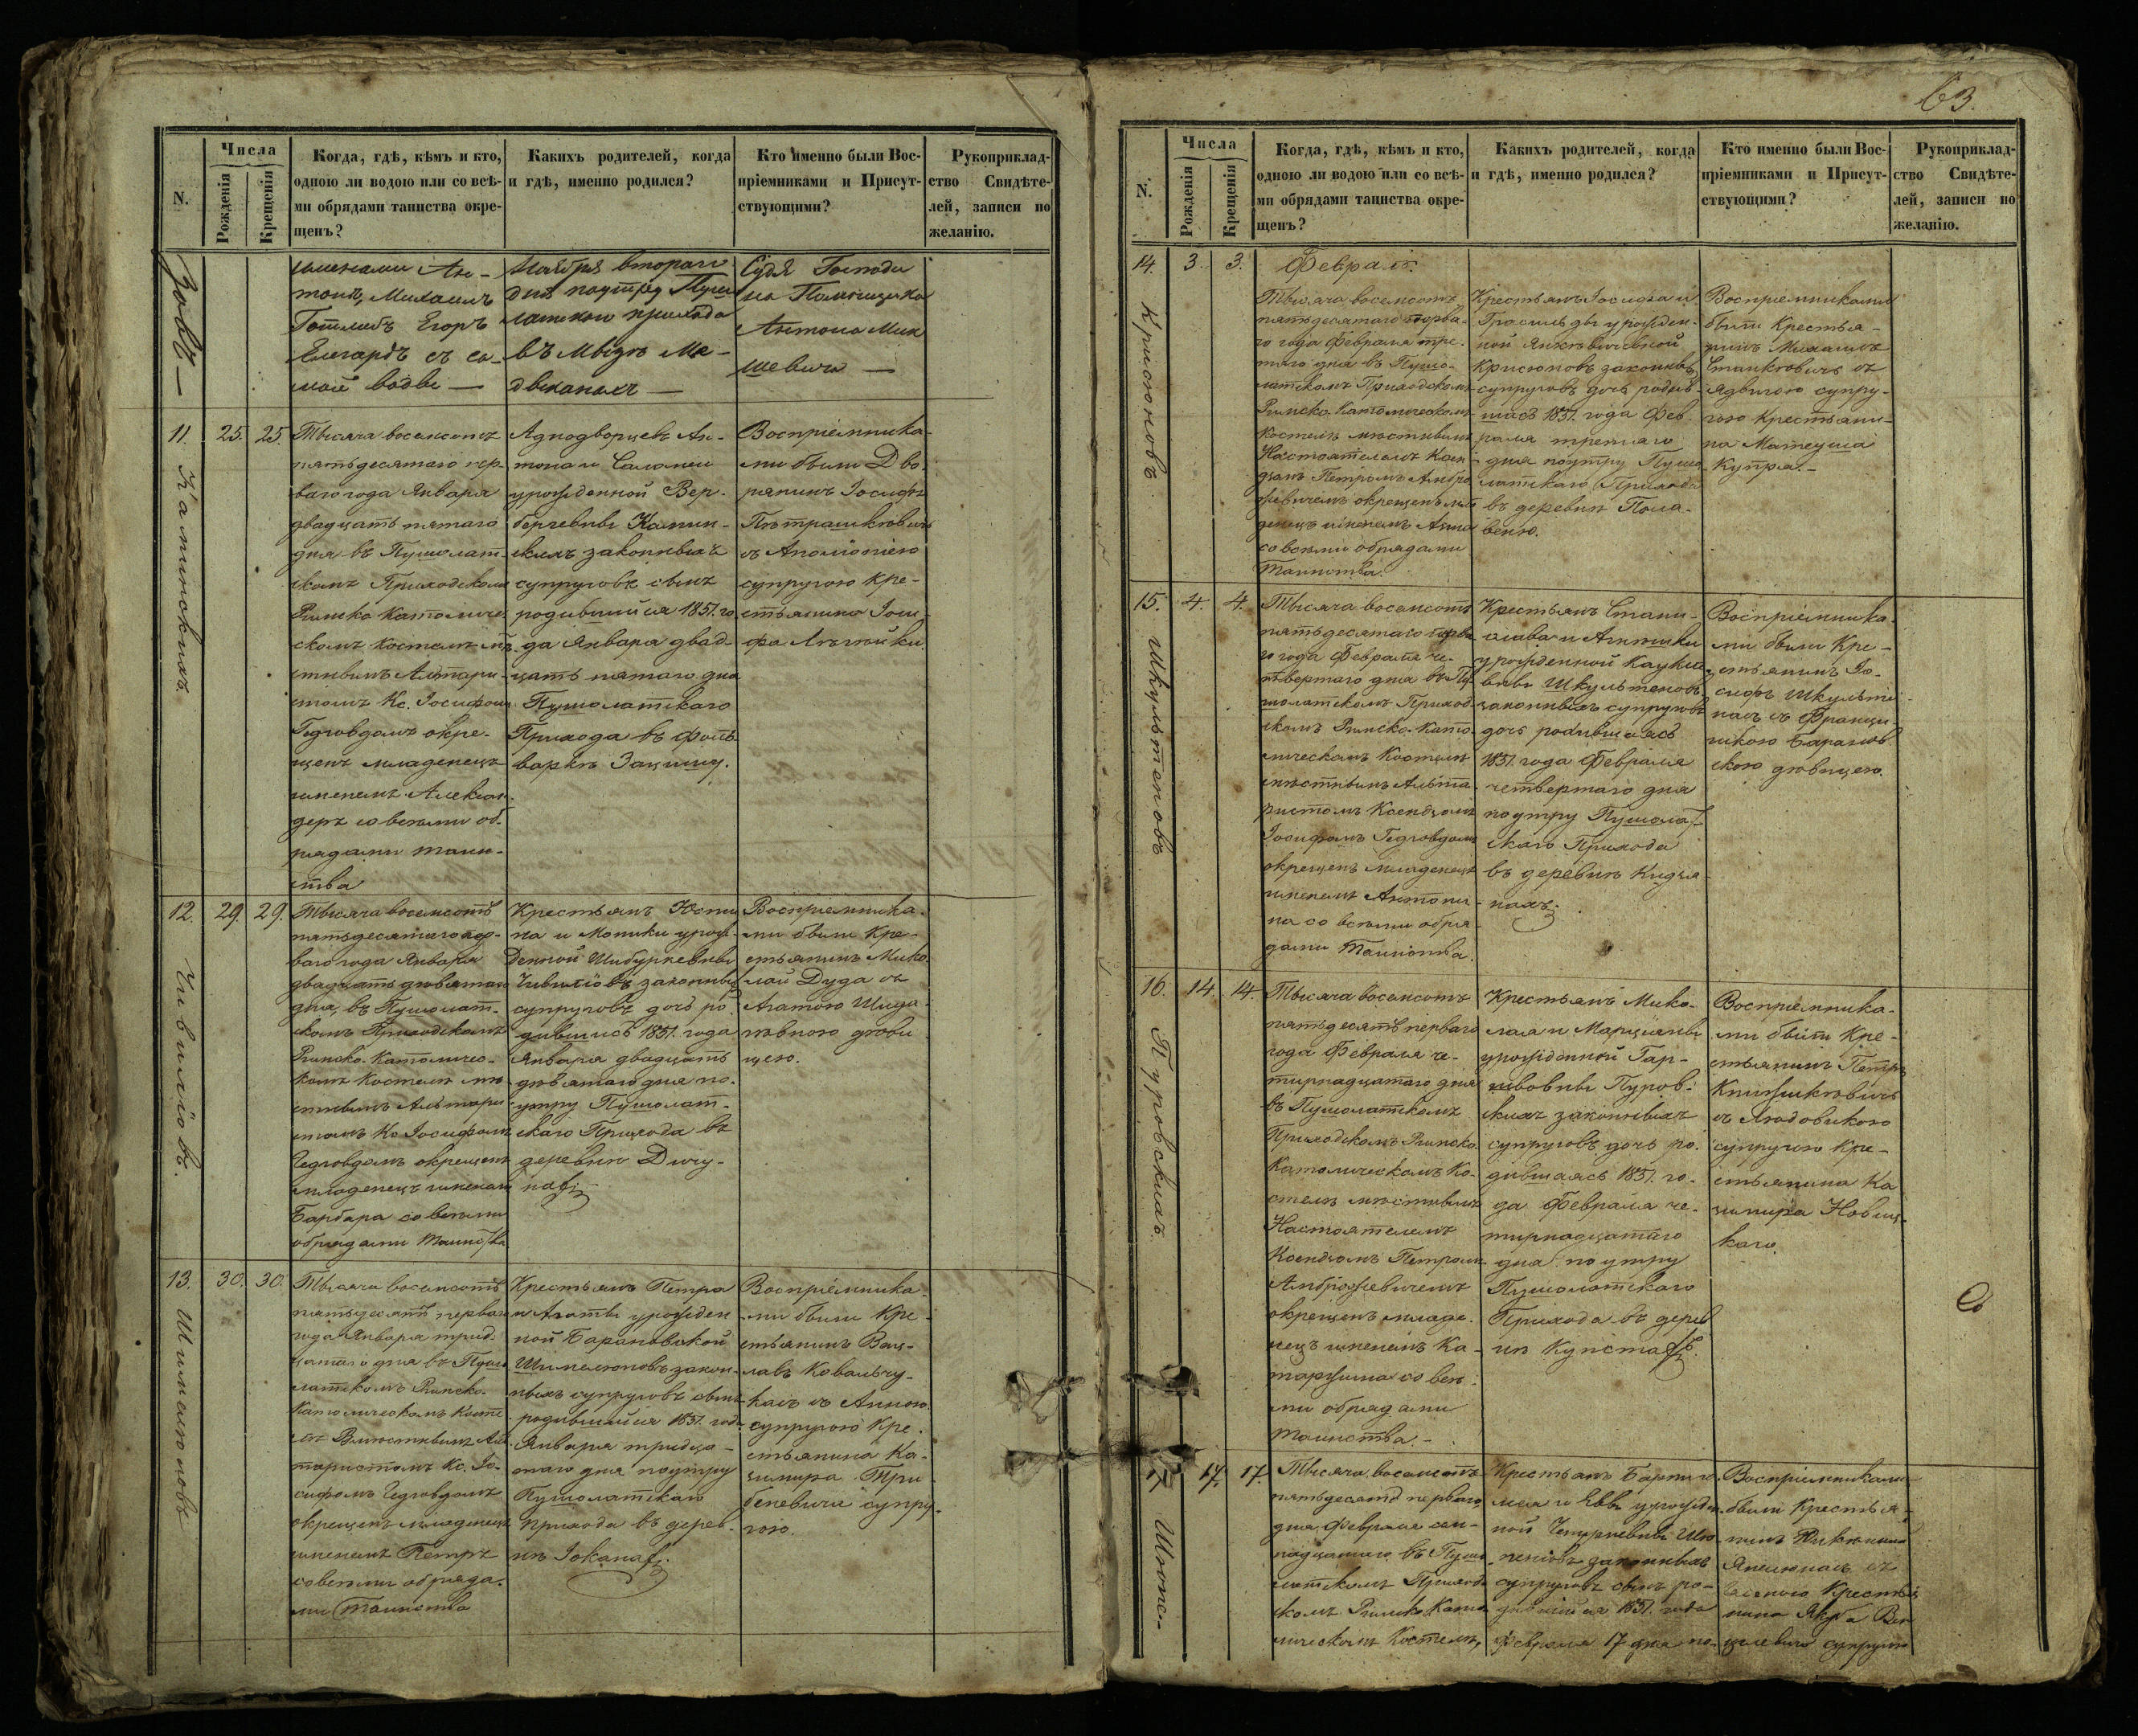 N.
Числа
Рожденія
Крещенія
Когда, гдѣ, кѣмъ и кто,
одною ли водою или со всѣ-
ми обрядами таинства окре-
щенъ?
Какихъ родителей, когда
и гдѣ, именно родился?
Кто именно были Вос-
пріемниками и Присут-
ствующими?
Рукоприклад-
ство Свидѣте-
лей, записи по
желанію.
именами Ан-
тонъ, Михаилъ
Готлибъ Егоръ
съ са-
мой водвы —
Ноября втораго
дня поутру Пуши
латскаго прихода
въ Мызѣ
Судя Господи
на Помещика
Антона Мик
шевича —
11.
25.
25.
Каминскихъ
Тысяча восемсотъ
пятьдесятаго пер-
ваго года Января
двадцать пятаго
дня въ Пушолат-
скомъ Приходскомъ
Римско Католиче
скомъ костелѣ мѣ-
стнымъ Алтари-
стомъ Кс. Іосифомъ
Гедговдомъ окре-
щенъ младенецъ
именемъ Алексан-
деръ со всѣми об-
рядами таин-
ства
Аднодворцевъ Ан-
тона и Саломеи
урожденной Вер-
бергевны Камин-
скихъ законныхъ
супруговъ сынъ
родившийся 1851. го
да Января двад-
цать пятаго дня
Пушолатскаго
Прихода въ фоль-
варкѣ Зацишу.
Воспріемника-
ми были Дво-
рянинъ Іосифъ
Пѣтрашкѣвичъ
съ Аполіоніею
супругою кре-
стьянина Іоси
фа
12.
29.
29.
Чивилiовъ.
Тысяча восемсотъ
пятьдесятаго пер-
ваго года Января
двадцать девятаго
дня въ Пушолат-
скомъ Приходскомъ
Римско-Католичес-
комъ Костелѣ мѣ-
стнымъ Альтари
стомъ Кс Іосифомъ
Гедговдомъ окрещенъ
младенецъ именемъ
Барбара со всѣми
обрядами Таинства
Крестьянъ Юсти
на и Моники урож-
денной Шибурневны
Чивилiовъ законныхъ
супруговъ дочь ро
дившись 1851. года
Января двадцать
девятаго дня по-
утру Пушолат-
скаго Прихода въ
деревнѣ Дичу-
нахъ
Воспріемника-
ми были Кре-
стьянинъ Мико
лай Дуда съ
Агатою Шида-
ювною дѣви
цею.
13.
30.
30.
Шимелюновъ
Тысяча восемсотъ
пятьдесятъ перваго
года Января трид-
цатаго дня въ Пушо
латскомъ Римско-
Католическомъ Косте
лѣ Вмѣстнымъ Аль
таристомъ Кс. Іо-
сифомъ Гедговдомъ
окрещенъ младенецъ
именемъ Петръ
со всѣми обряда-
ми Таинства
Крестьянъ Петра
и Агаты урожден
ной Барановской
Шимелюновъ закон-
ныхъ супруговъ сынъ
родившийся 1851. года
Января тридца-
таго дня поутру
Пушолатскаго
прихода въ дерев-
нѣ Іоканахъ
Воспріемника-
ми были Кре-
стьянинъ Вац-
лавъ Ковальчу-
касъ съ Анною
супругою Кре-
стьянина Ка-
зимира Тры-
беневича супру-
гою.
63.
N.
Числа
Рожденія
Крещенія
Когда, гдѣ, кѣмъ и кто,
одною ли водою или со всѣ-
ми обрядами таинства окре-
щенъ?
Какихъ родителей, когда
и гдѣ, именно родился?
Кто именно были Вос-
пріемниками и Присут-
ствующими?
Рукоприклад-
ство Свидѣте-
лей, записи по
желанію.
14.
3.
3.
Крисюновъ
Февраль.
Тысяча восемсотъ
пятьдесятаго перва-
го года Февраля тре-
тяго дня въ Пушо-
латскомъ Приходскомъ
Римско-Католическомъ
Костелѣ мѣстнымъ
Настоятелемъ Ксен-
дзомъ Петромъ Амбро
жевичемъ окрещенъ мла
денецъ именемъ Анна
со всѣми обрядами
Таинства.
Крестьянъ Іосифа и
Грасильды урожден-
ной Янкѣвичовной
Крисюновъ законныхъ
супруговъ дочь родив-
шись 1851. года Фев-
раля третяго
дня поутру Пушо
латскаго Прихода
въ деревнѣ Пола-
веню.
Воспріемниками
были Крестья-
нинъ Михаилъ
Станкѣвичъ съ
Ядвигою супру-
гою Крестьяни-
на Матеуша
Купра.-
15.
4.
4.
Шкультеновъ
Тысяча восемсотъ
пятьдесятаго перва
го года Февраля че-
твертаго дня въ Пу-
шолатскомъ Приход-
скомъ Римско-Като-
лическомъ Костелѣ
мѣстнымъ Альта-
ристомъ Ксендзомъ
Іосифомъ Гедговдомъ
окрещенъ младенецъ
именемъ Антони-
на со всѣми обря-
дами Таинства.
Крестьянъ Стани-
слава и
урожденной
Шкультеновъ
законныхъ супруговъ
дочь родившаясь
1851. года Февраля
четвертаго дня
поутру Пушолат-
скаго Прихода
въ деревнѣ Кидзя-
нахъ.
Воспріемника-
ми были Кре-
стьянинъ Іо-
сифъ Шкульте-
насъ съ Франци-
шкою Баранов-
скою дѣвицею.
16.
14.
14.
Пуровскихъ
Тысяча восемсотъ
пятьдесятъ перваго
года Февраля че-
тырнадцатаго дня
въ Пушолатскомъ
Приходскомъ Римско
Католическомъ Ко-
стелѣ мѣстнымъ
Настоятелемъ
Ксендзомъ Петромъ
Амброжевичемъ
окрещенъ младе-
нецъ именемъ Ка-
таржина со всѣ-
ми обрядами
Таинства.-
Крестьянъ Мико-
лая и Марціянны
урожденной Гар-
Пуров-
скихъ законныхъ
супруговъ дочь ро-
дившаясь 1851. го-
да Февраля че-
тырнадцатаго
дня поутру
Пушолатскаго
Прихода въ дерев
нѣ
Воспріемника-
ми были Кре-
стьянинъ Петръ
Книжикѣвичъ
съ Людовикою
супругою Кре-
стьянина Ка
зимира Новиц-
каго.
17.
17.
17.
Шюпс-
Тысяча восемсотъ
пятьдесятъ перваго
дня Февраля сем-
надцатаго въ Пушо
латскомъ Приход
скомъ Римско Като
лическомъ Костелѣ,
Крестьянъ Бартло
мея и Еввы урожден
ной
законныхъ
супруговъ сынъ ро-
дившійся 1851. года
Февраля 17 дня по-
Воспріемниками
были Крестья-
нинъ
съ
Крестья
нина Якуба Вен
цлевича супругою